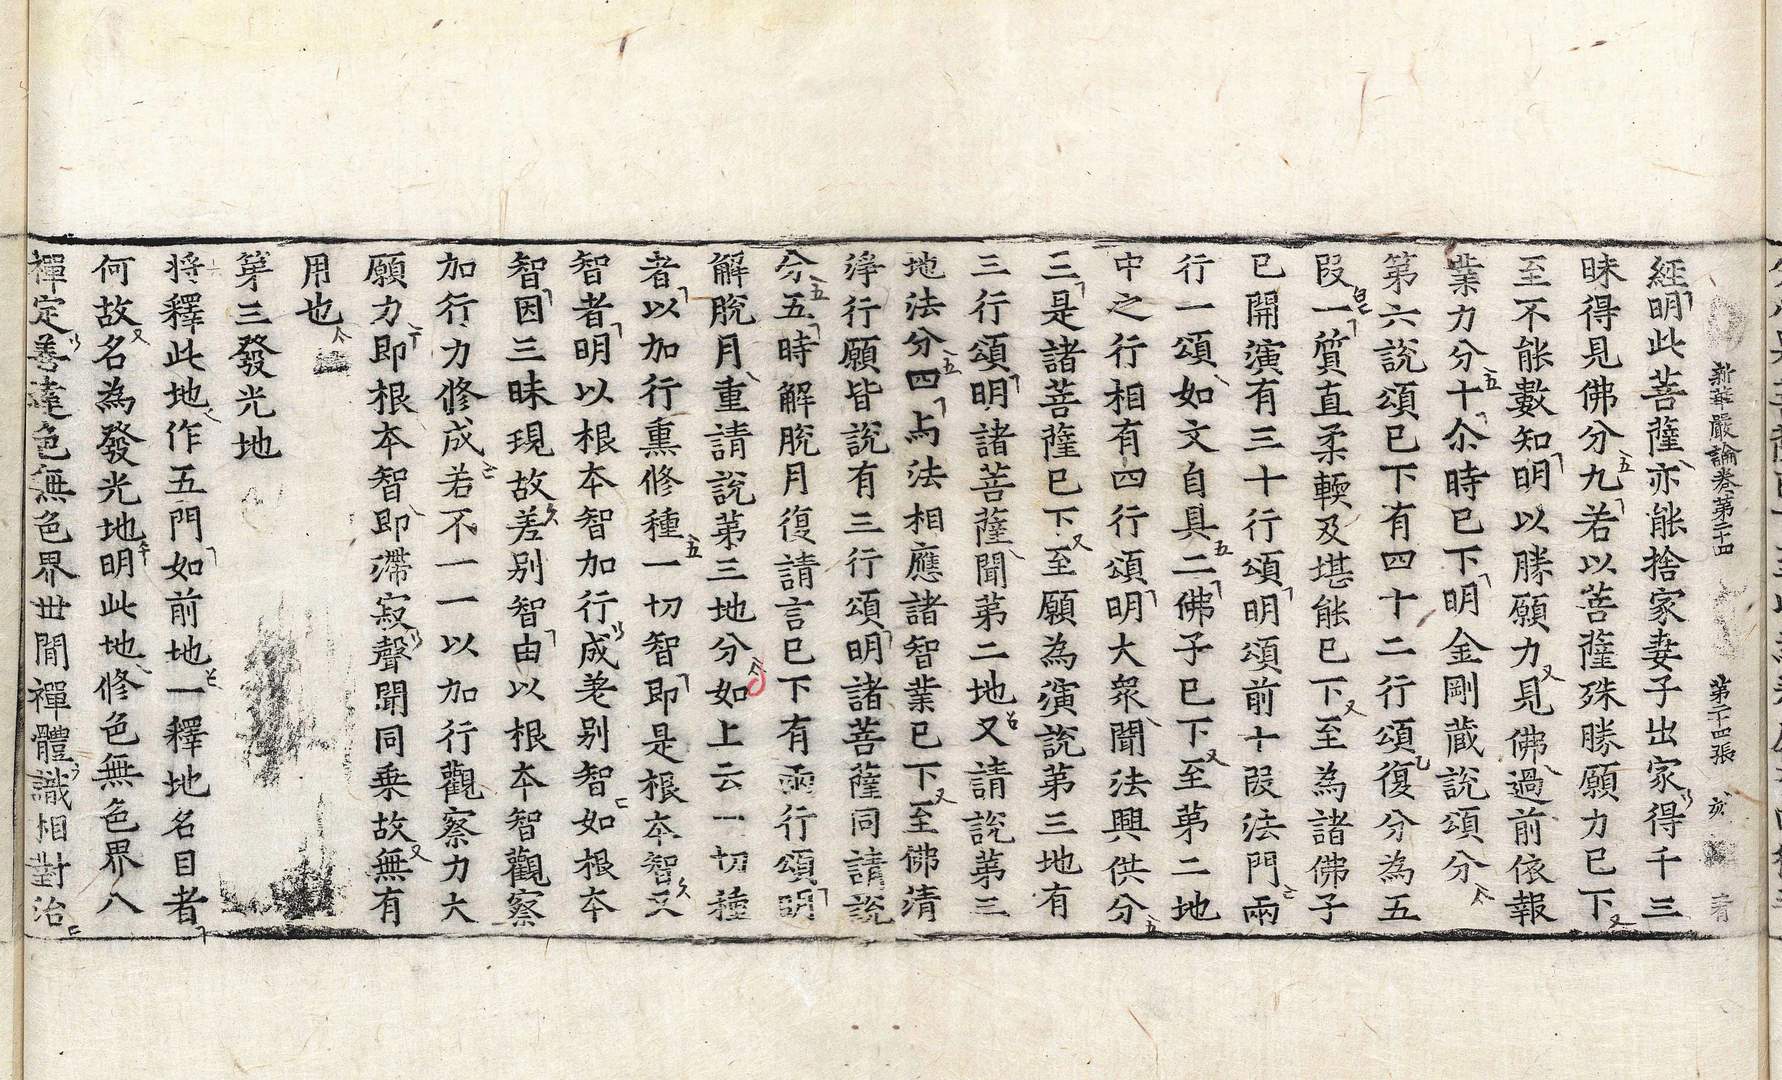 新華嚴論卷第二十四 第二十四張 亥
經明此菩薩亦能捨家妻子出家得千三
昧得見佛分九若以菩薩殊勝願力已下
至不能數知明以勝願力見佛過前依報
業力分十尒時已下明金剛藏說頌分
第六說頌已下有四十二行頌復分為五
段一質直柔輭及堪能已下至為諸佛子
已開演有三十行頌明頌前十段法門兩
行一頌如文自具二佛子已下至第二地
中之行相有四行頌明大衆聞法興供分
三是諸菩薩已下至願為演說第三地有
三行頌明諸菩薩聞第二地又請說第三
地法分四与法相應諸智業已下至佛清
淨行願皆說有三行頌明諸菩薩同請說
分五時解脫月復請言已下有兩行頌明
解脫月重請說第三地分如上云一切種
者以加行熏修種一切智即是根本智又
智者明以根本智加行成差别智如根本
智因三昧現故差别智由以根本智觀察
加行力修成若不一一以加行觀察力大
願力即根本智即滯寂聲聞同乗故無有
用也
第三發光地
將釋此地作五門如前地一釋地名目者
何故名為發光地明此地修色無色界八
禪定善達色無色界世間禪體識相對治